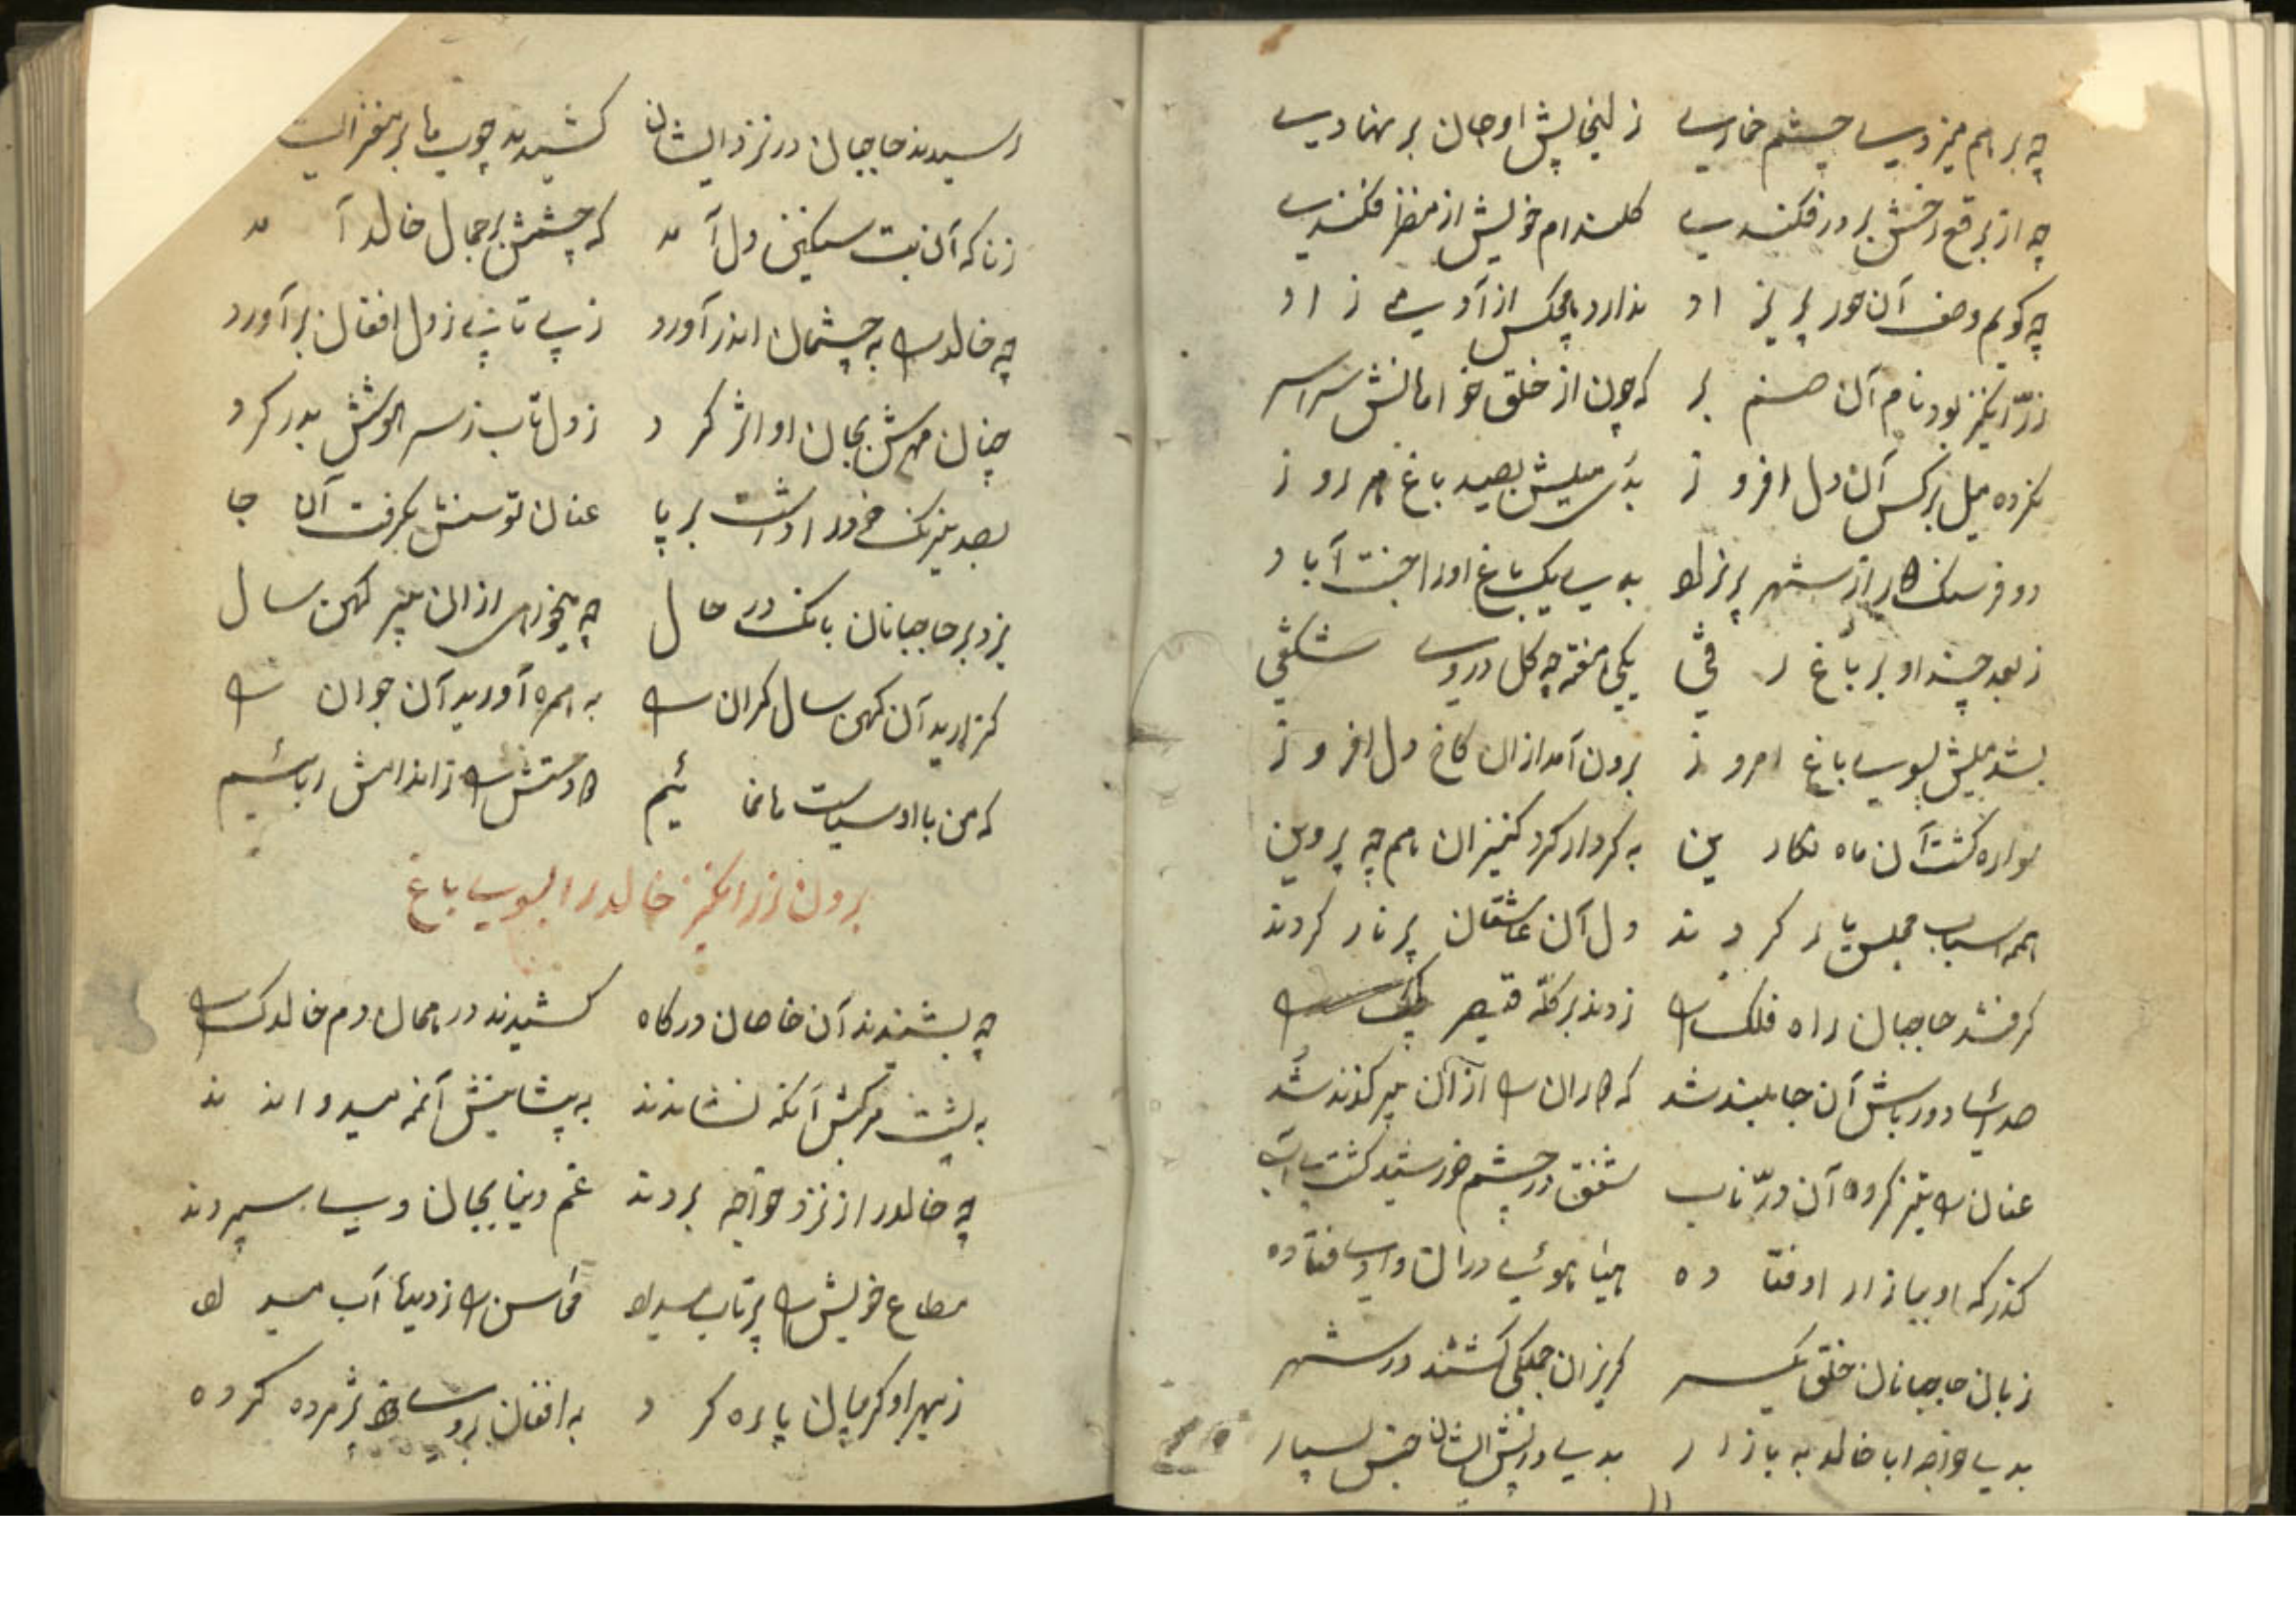 چه بر هم میزدی چشم خماری زلیخا پیش او جان بر نهادی
چه از برقع رخش بر در فکندی کلندام خویش از منظر فکندی
چه کویم وصف آن حور پریزاد ندارد هیچکس از آدمی زاد
زرّانکیز بود نام آن صنم بر که چون از خلق خو امانش سراسر
نکرده میل بر کس آن دل افروز بدی میلش بصید باغ هر روز
دو فرسنک از شهر بدی یک باغ او را جنت آباد
ز بعد چند او بر باغ رفتی یکی هفته چه کل در وی شکفتی
بشد میلش بسوی باغ امروز برون آمد از ان کاخ دل افروز
سواره کشت آن ماه نکارین به کردار کرد کنیزان هم چه پروین
همه اسباب مجلس بار کردند دل آن عاشقان پر نار کردند
کرفتند حاجبان راه فلک را زدند بر کلّه قیصر
صدای دور باش آن جا بلند شد که از آن
عنان را تیز کرده آن درّ ناب شفق در چشم خورشید کشت
کذر که او ببازار اوفتاده هیاهوئی در ان وادی فتاده
ز بان حاجبانان خلق یکسر کریزان جملکی کشتند در شهر
بدی خواجه ابا خالد به بازار بدی در پیش ایشان جنس بسیار
رسیدند حاجبان در نزد ایشان کشیدند چوب ها بر مغز
زناکه آن بت سنکین دل آمد که چشمش بر جمال خالد آمد
چه خالد را به چشمان اندر آورد ز پی تا پی ز دل افغان بر آورد
چنان مهرش بجان او اثر کرد ز دل تاب ز سر هوشش بدر کرد
بصد نیرنک خود را داشت بر پا عنان توسنش بکرفت آن جا
بزد بر حاجبانان بانک در حال چه میخواهی از ان پیر کهن سال
کزارید آن کهن سال کران را به همره آورید آن جوان را
که من با او سیاست ها نمائیم را ز اندامش ربائیم
بردن زرانکیز خالد را بسوی باغ
چه بشنیدند آن خاصان درکاه کشیدند در همان دم خالدک را
به پشت مرکبش آنکه نشاندند به پیشاپیش آنمه میدواندند
چه خالد را از نزد خواجه بردند غم دنیا بجان وی سپردند
مطاع خویش را پرتاب میداد محاسن را ز دیده آب میداد
ز بهر او کریبان پاره کرد به افغان روی خود پژمرده کرده